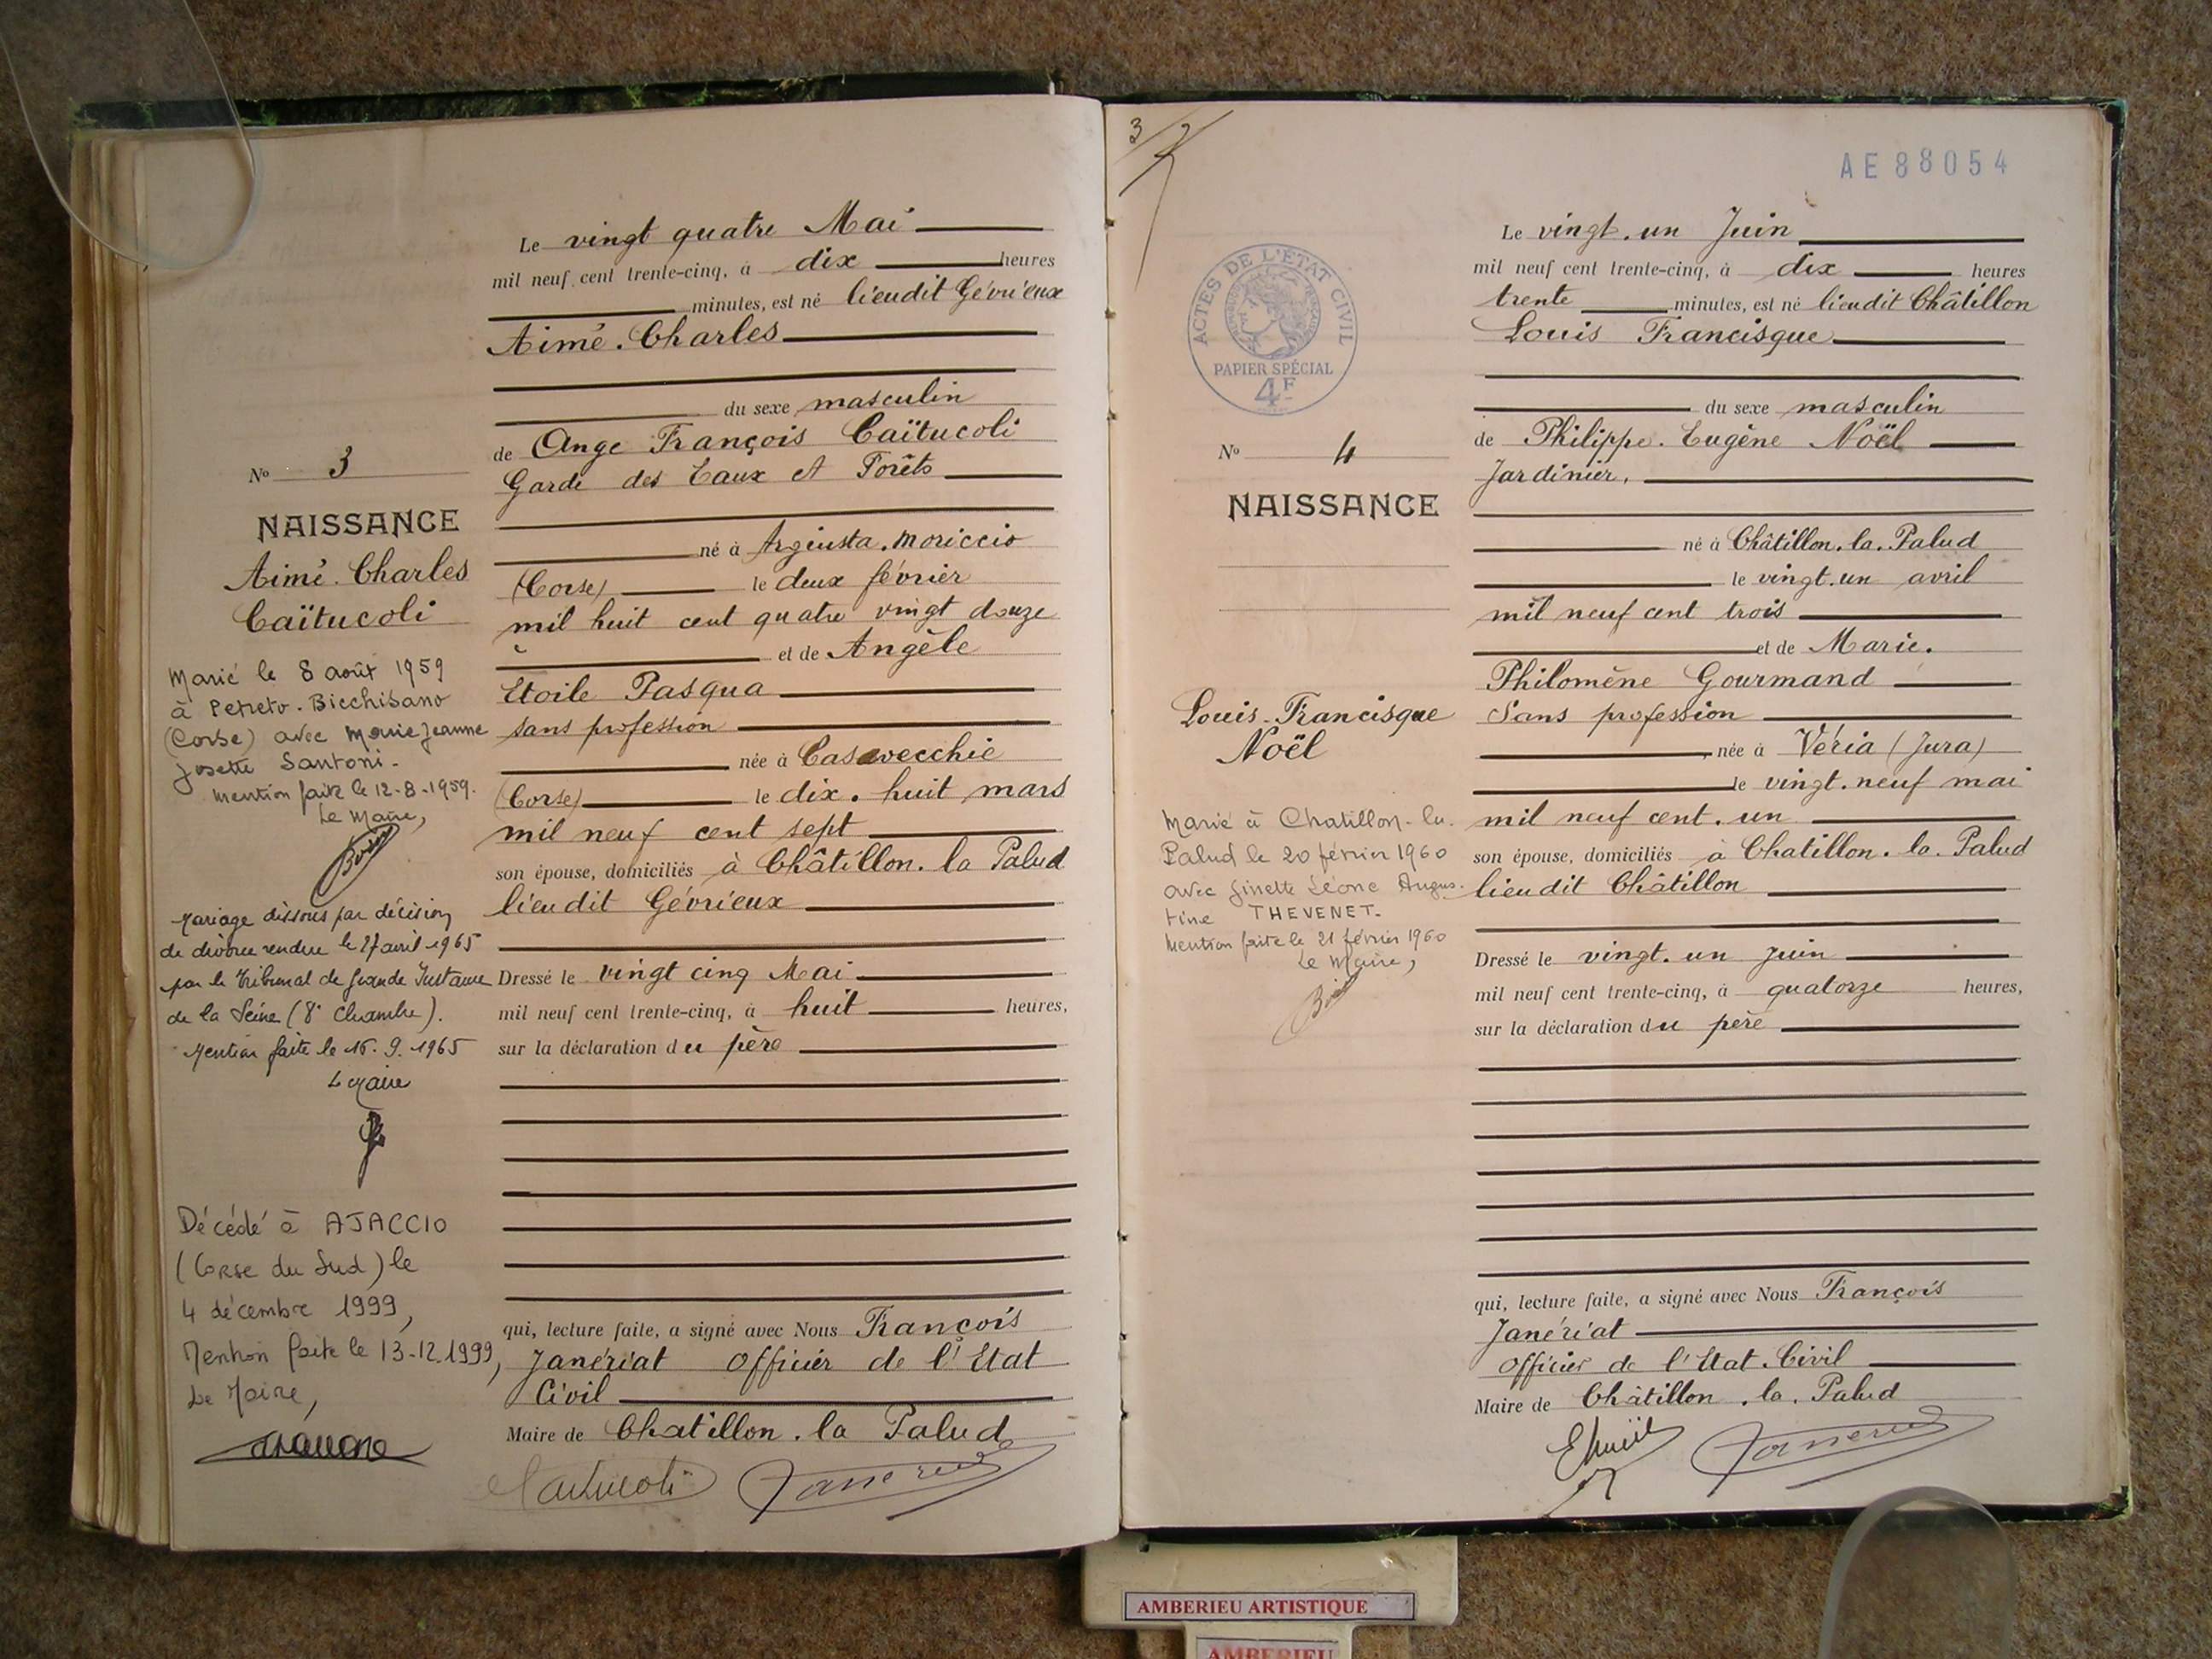 Le vingt quatre Mai
mil neuf cent trente-cinq, à dix heures
minutes, est né lieudit Gévrieux
Aimé. Charles
du sexe masculin
de Ange François Caïtucoli
Garde des Eaux et Forêts
né à Argiusta. Moriccio
(Corse) le deux février
mil huit cent quatre vingt douze
et de Angèle
Etoile Pasqua
sans profession
née à Casavecchie
(Corse) le dix. huit mars
mil neuf cent sept
son épouse, domiciliés à Châtillon. la Palud
lieudit Gévrieux
Dressé le vingt cinq Mai
mil neuf cent trente-cinq, à huit heures,
sur la déclaration du père
qui, lecture faite, a signé avec Nous François
Janériat Officier de l'Etat
Civil
Maire de Chatillon. la Palud
Caitucoli Janeriat
No 3
NAISSANCE
Aimé. Charles
Caïtucoli
Marié le 8 août 1959
à Petreto-Bicchisano
(Corse) avec Marie Jeanne
Josette Santoni.
Mention faite le 12-8-1959.
Le Maire,
Mariage dissous par décision
de divorce rendue le 27 avril 1965
par le Tribunal de Grande Instance
de la Seine (8e Chambre).
Mention faite le 16.9.1965
Le Maire
Décédé à AJACCIO
(Corse du Sud) le
4 décembre 1999,
Mention faite le 13-12.1999,
Le Maire,
3
AE 88054
ACTES DE L'ÉTAT CIVIL
PAPIER SPÉCIAL
4F
Le vingt. un Juin
mil neuf cent trente-cinq, à dix heures
trente minutes, est né lieudit Châtillon
Louis Francisque
du sexe masculin
de Philippe. Eugène Noël
Jardinier,
né à Châtillon. la. Palud
le vingt. un avril
mil neuf cent trois
et de Marie.
Philomène Gourmand
Sans profession
née à Véria (Jura)
le vingt. neuf mai
mil neuf cent. un
son épouse, domiciliés à Chatillon. la. Palud
lieudit Châtillon
Dressé le vingt. un Juin
mil neuf cent trente-cinq, à quatorze heures,
sur la déclaration du père
qui, lecture faite, a signé avec Nous François
Janériat
Officier de l'Etat. Civil
Maire de Châtillon. la. Palud
Janeriat
No 4
NAISSANCE
Louis-Francisque
Noël
Marié à Chatillon-la.
Palud le 20 février 1960
avec Ginette Léone Augus.
tine THEVENET.
Mention faite le 21 février 1960
Le Maire,
AMBERIEU ARTISTIQUE
AMBERIEU